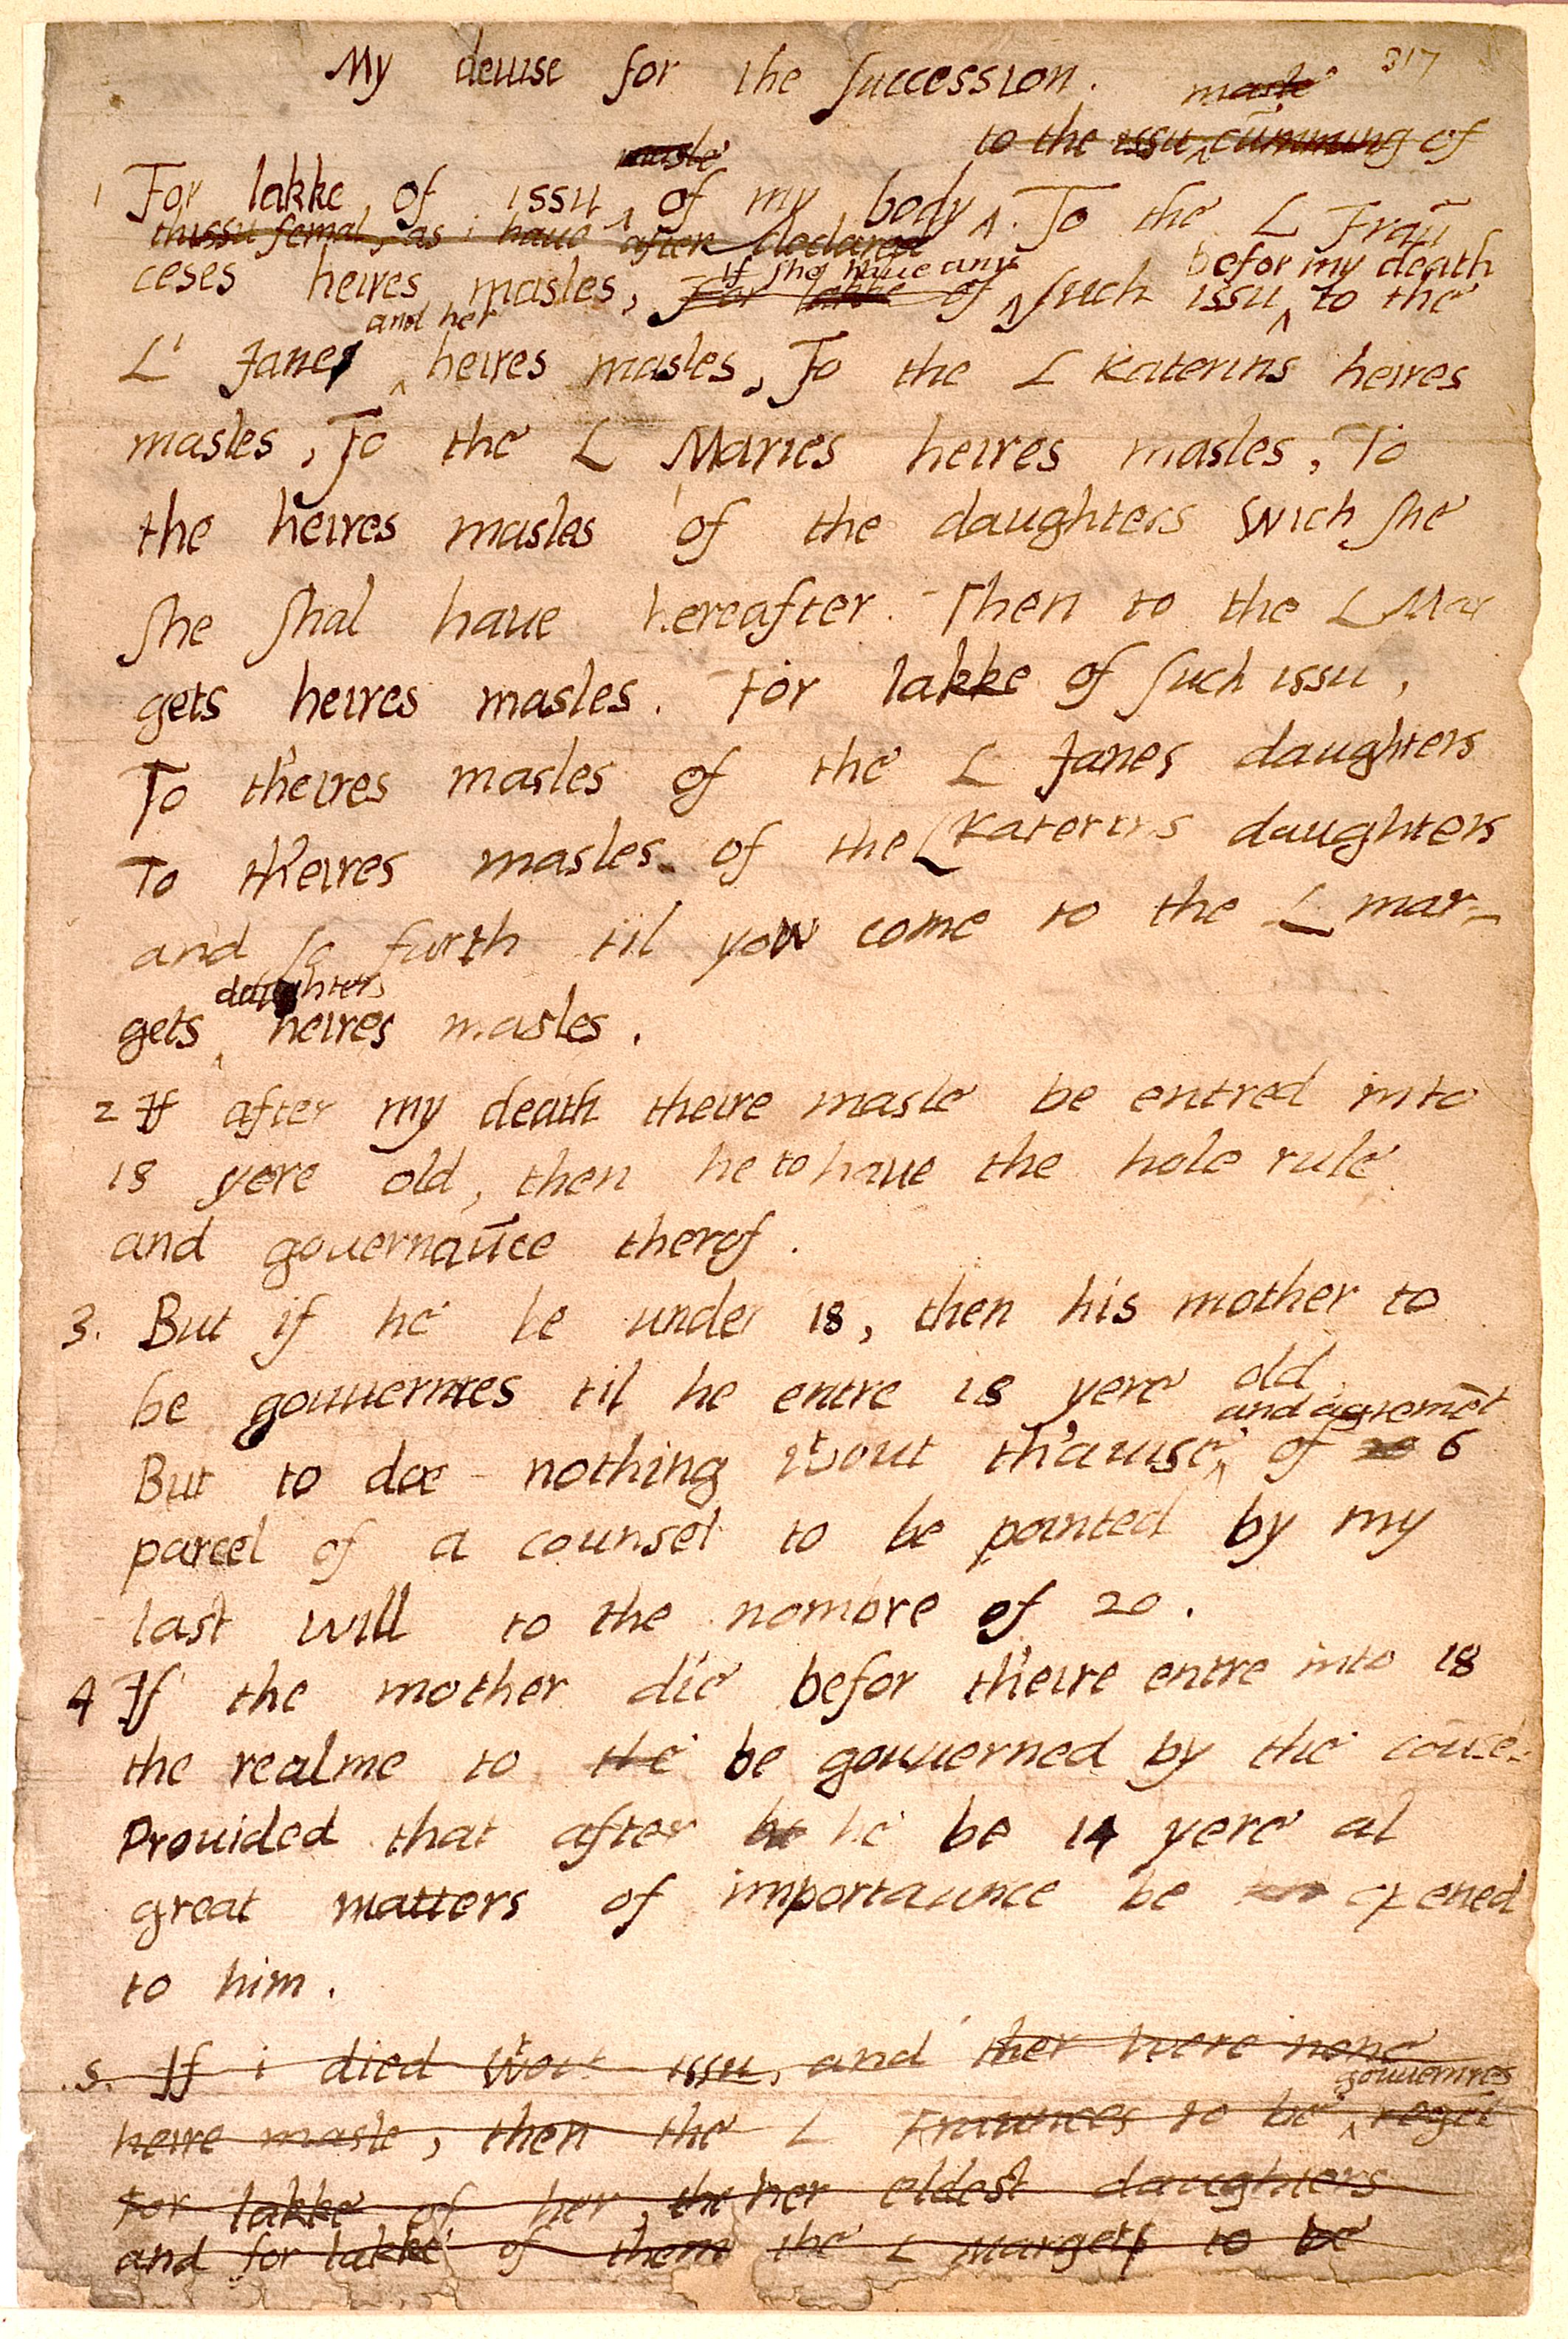 My deuise for the succession. 317
masle
to the issu cūmming of
masle
1 For lakke of issu of my body. To the L Frau̅
thissu femal, as i haue after declared
ceses heires masles, For lakke of if she haue any such issu befor my death to the
L' Janes and her heires masles, To the L Katerins heires
masles, To the L Maries heires masles, To
the heires masles of the daughters wich she
she shal haue hereafter. Then to the L Mar
gets heires masles. For lakke of such issu,
To th'eires masles of the L Janes daughters
To th'eires masles of the L Katerins daughters
and so furth til yow come to the L mar-
daughters
gets heires masles.
2 If after my death theire masle be entred into
18 yere old, then he to haue the hole rule
and gouernau̅ce therof.
3. But if he be under 18, then his mother to
be gouuernres til he entre 18 yere old
and agremēt
But to doe nothing wͭout th'auise of 20 6
parcel of a counsel to be pointed by my
last will to the nombre of 20.
4 If the mother die befor th'eire entre into 18
the realme to the be gouuerned by the cou̅ce-
Prouided that after he he be 14 yere al
great matters of importaunce be opened
to him.
5. If i died wͭout issu, and ther were none
gouuernres
heire masle, then the L Fraunces to be regēt
For lakke of her, the her eldest daughters
and for lakke of them the L Margets to be